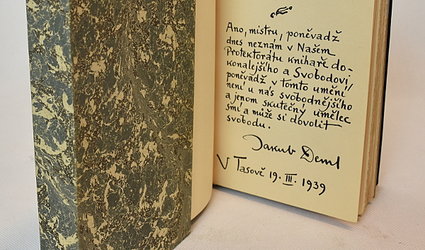 Ano, mistru, poněvadž
dnes neznám v Našem
Protektorátu knihaře do-
konalejšího a Svobodoví/
poněvadž v tomto umění
není u nás svobodnějšího
a jenom skutečný umělec
smí a může si dovolit
svobodu.
Jakub Deml
V Tasově 19. III. 1939